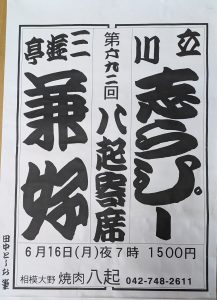 立川
志らぴー
第六九二回
八起寄席
三遊亭
兼好
6月16日(月)夜7時 1500円
相模大野 焼肉八起 042-748-2611